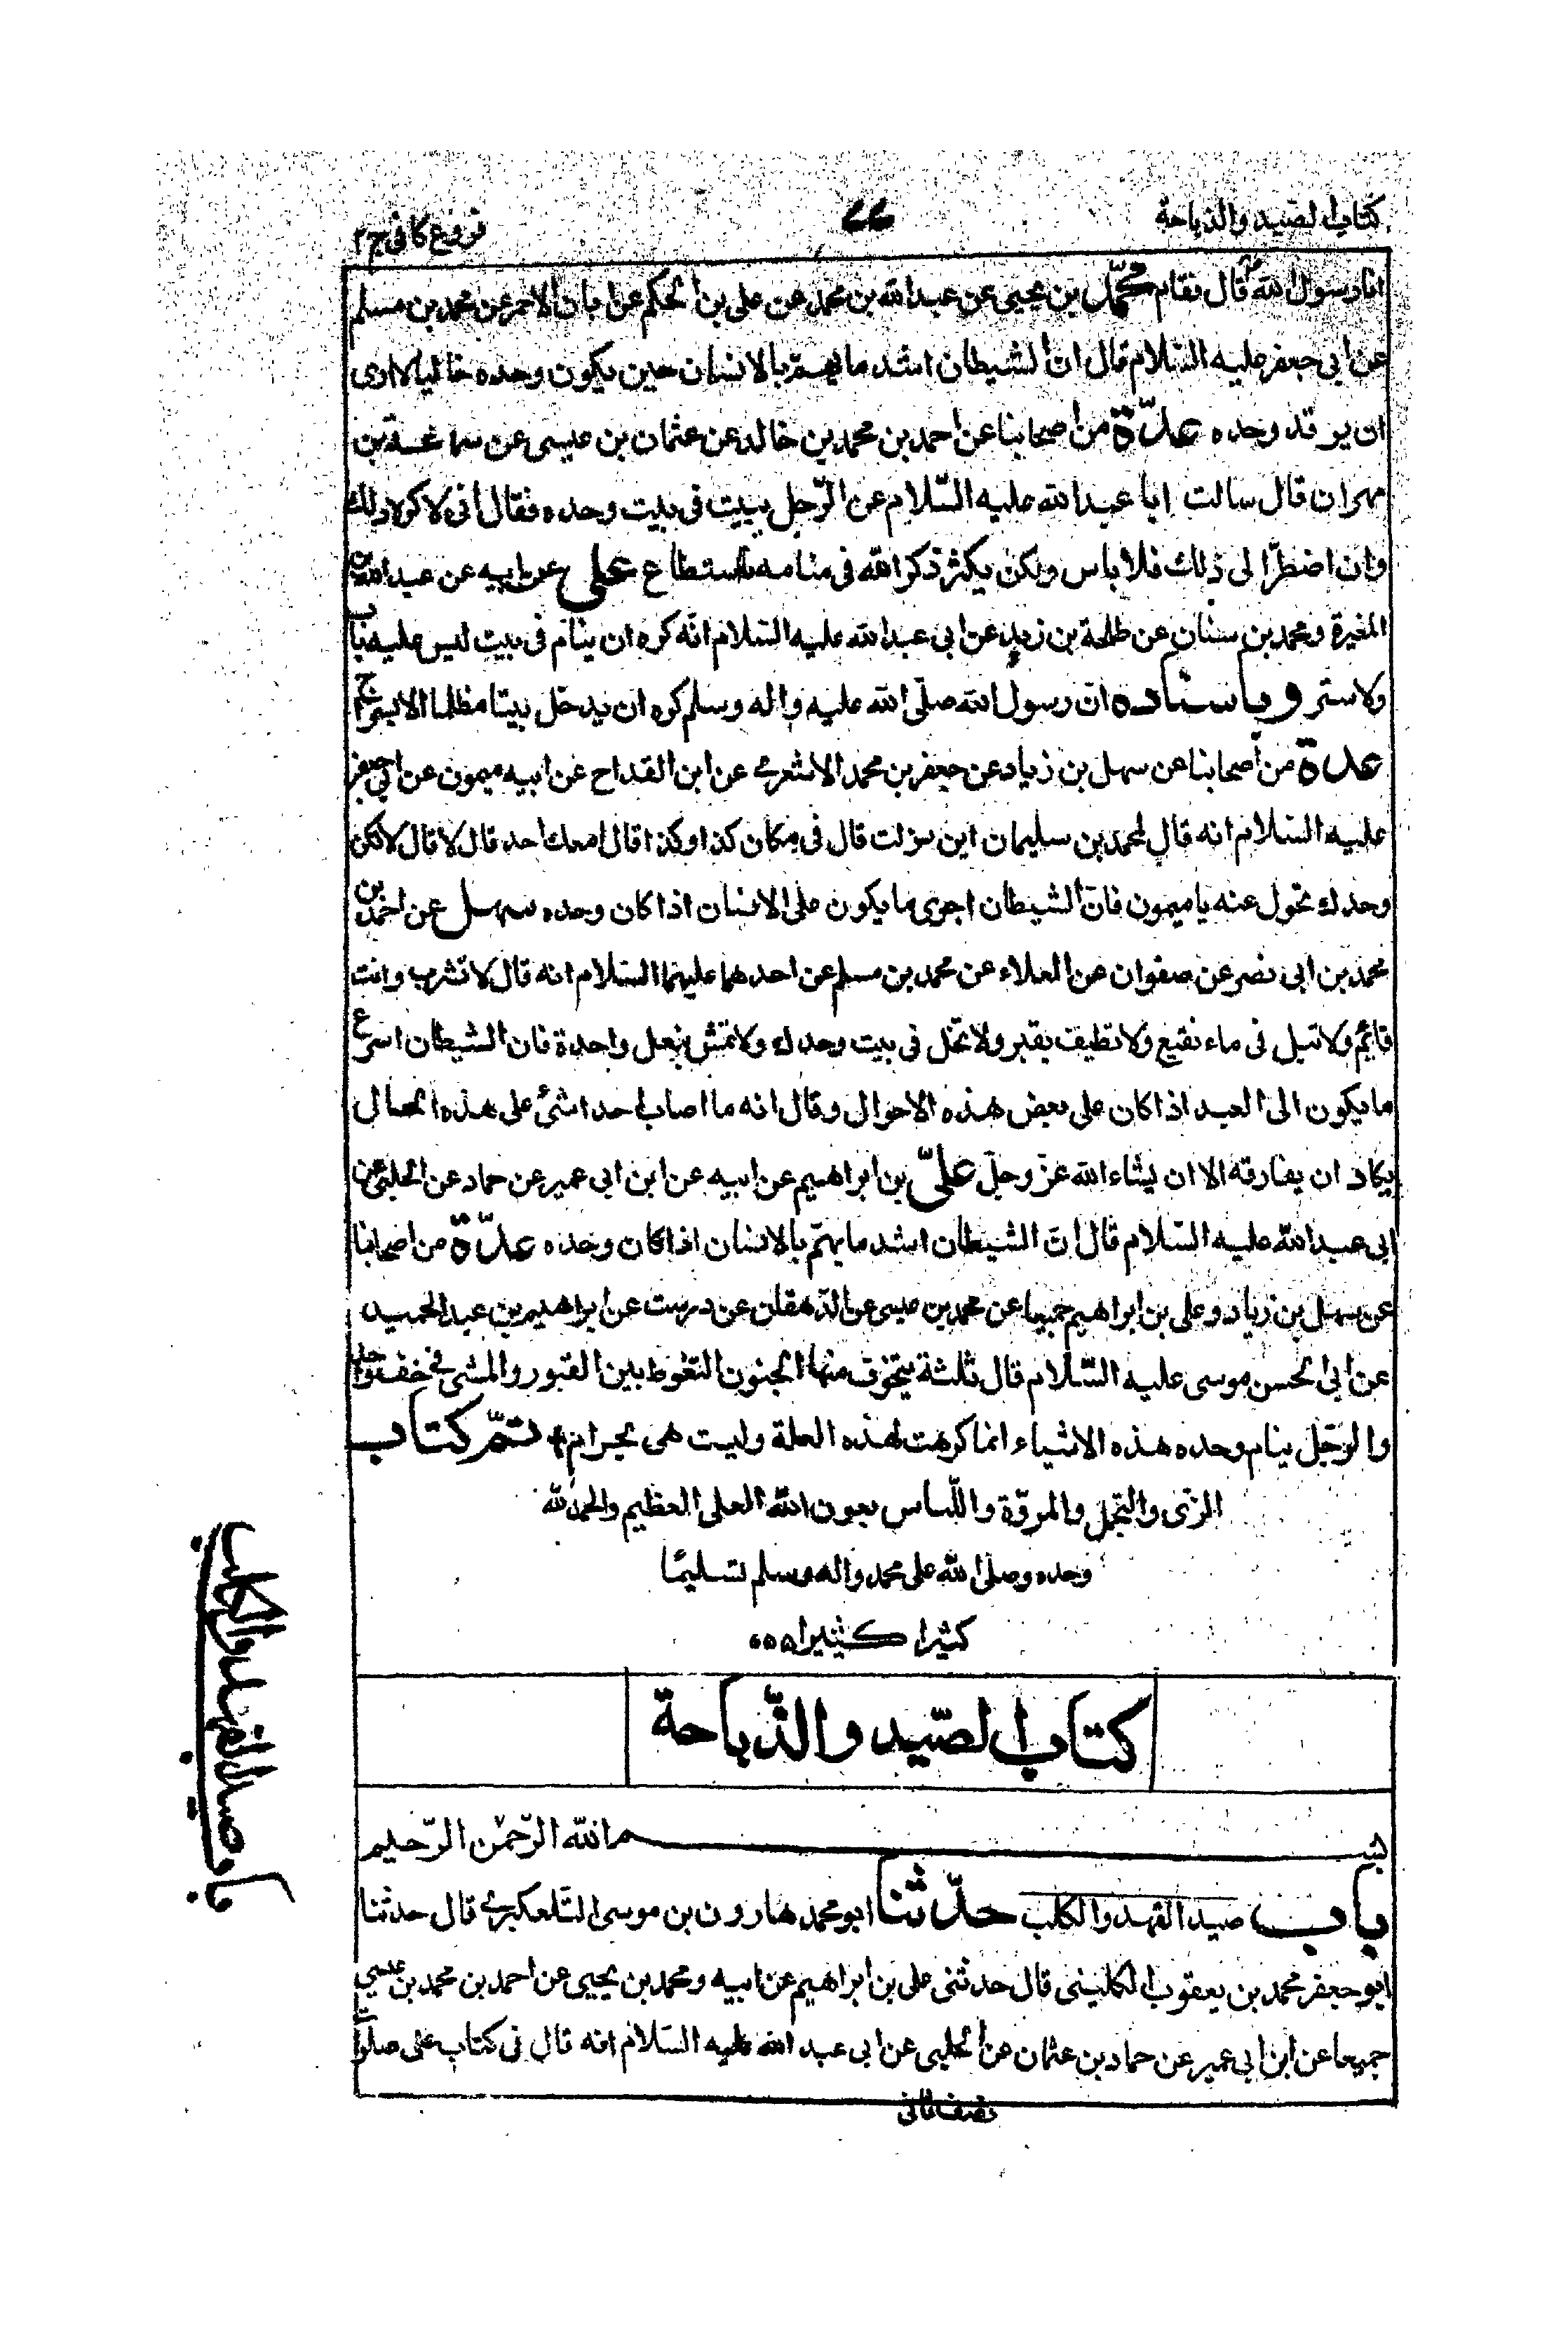 كتاب الصّيد والذباحة
٧٧
فروع كافي ج ٢
انا رسول الله ص قال فقام محمّد بن يحيى عن عبد الله بن محمد عن علي بن الحكم عن ابان الاحمر عن محمد بن مسلم
عن ابي جعفر عليه السّلام قال ان الشيطان اشد ما يهمّ بالانسان حين يكون وحده خاليا لا ارى
ان يرقد وحده عدّة من اصحابنا عن احمد بن محمد بن خالد عن عثمان بن عيسى عن سماعة بن
مهران قال سالت ابا عبد الله عليه السّلام عن الرّجل يبيت في بيت وحده فقال اني لاكره ذلك
وان اضطرّ الى ذلك فلا باس ولكن يكثر ذكر الله في منامه ما استطاع علي عن ابيه عن عبد الله بن
المغيرة ومحمد بن سنان عن طلحة بن زيد عن ابي عبد الله عليه السّلام انّه كره ان ينام في بيت ليس عليه باب
ولا ستر وباسناده انّ رسول الله صلّى الله عليه واله وسلم كره ان يدخل بيتا مظلما الا بسراج
عدة من اصحابنا عن سهل بن زياد عن جعفر بن محمد الاشعري عن ابن القداح عن ابيه ميمون عن ابي جعفر
عليه السّلام انه قال لمحمد بن سليمان اين نزلت قال في مكان كذا وكذا قال امعك احد قال لا قال لا تكن
وحدك تحول عنه يا ميمون فانّ الشيطان اجرى ما يكون على الانسان اذا كان وحده سهل عن احمد بن
محمد بن ابي نصر عن صفوان عن العلاء عن محمد بن مسلم عن احدهما عليهما السّلام انه قال لا تشرب وانت
قائم ولا تبل في ماء نقيع ولا تطيف بقبر ولا تخل في بيت وحدك ولا تمش بنعل واحدة فان الشيطان اسرع
ما يكون الى العبد اذا كان على بعض هذه الاحوال وقال انه ما اصاب احدا شئ على هذه الحال
يكاد ان يفارقه الا ان يشاء الله عزّ وجلّ علىّ بن ابراهيم عن ابيه عن ابن ابي عمير عن حماد عن الحلبي عن
ابي عبد الله عليه السّلام قال انّ الشيطان اشد ما يهمّ بالانسان اذا كان وحده عدّة من اصحابنا
عن سهل بن زياد وعلي بن ابراهيم جميعا عن محمد بن عيسى عن الدّهقان عن درست عن ابراهيم بن عبد الحميد
عن ابي الحسن موسى عليه السّلام قال ثلثة يتخوف منها الجنون التغوط بين القبور والمشي في خف واحد
والرّجل ينام وحده هذه الاشياء انما كرهت لهذه العلة وليست هي بحرام تمّ كتاب
الزي والتجمل والمروّة واللّباس بعون الله العلي العظيم والحمد لله
وحده وصلى الله على محمد واله وسلم تسليمًا
كثيرا كثيرا
كتاب الصّيد والذّباحة
بسم الله الرّحمن الرّحيم
باب صيد الفهد والكلب حدّثنا ابو محمد هارون بن موسى التّلعكبري قال حدثنا
ابو جعفر محمد بن يعقوب الكليني قال حدثني علي بن ابراهيم عن ابيه ومحمد بن يحيى عن احمد بن محمد بن عيسى
جميعا عن ابن ابي عمير عن حماد بن عثمان عن الحلبي عن ابي عبد الله عليه السّلام انه قال في كتاب علي صلوات
نصف ثاني
باب صيد الفهد والكلب